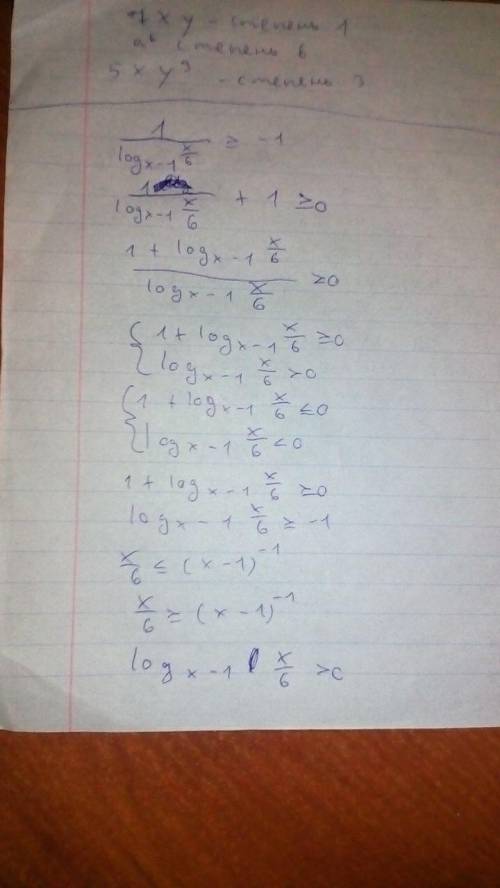 7 x y - степень 1
a⁶ степень 6
5 x y³ - степень 3
1 / log_{x-1} x/6 ≥ -1
1 / log_{x-1} x/6 + 1 ≥ 0
1 + log_{x-1} x/6 / log_{x-1} x/6 ≥ 0
{ 1 + log_{x-1} x/6 ≥ 0
log_{x-1} x/6 > 0
{ 1 + log_{x-1} x/6 ≤ 0
log_{x-1} x/6 < 0
1 + log_{x-1} x/6 ≥ 0
log_{x-1} x/6 ≥ -1
x/6 ≤ (x-1)⁻¹
x/6 ≥ (x-1)⁻¹
log_{x-1} x/6 > 0